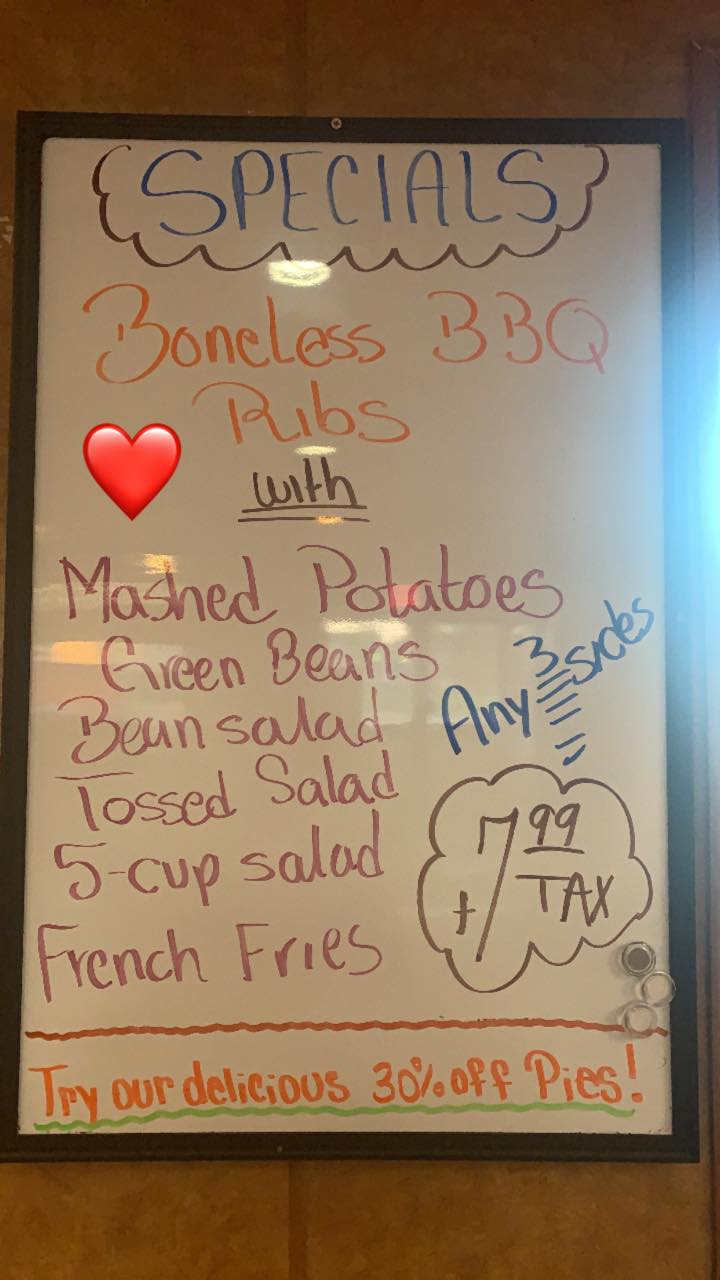 SPECIALS
Boneless BBQ
Ribs
with
Mashed Potatoes
Green Beans
Bean salad
Tossed Salad
5-cup salad
French Fries
Any 3 sides
7 99
+ TAX
Try our delicious 30% off Pies!